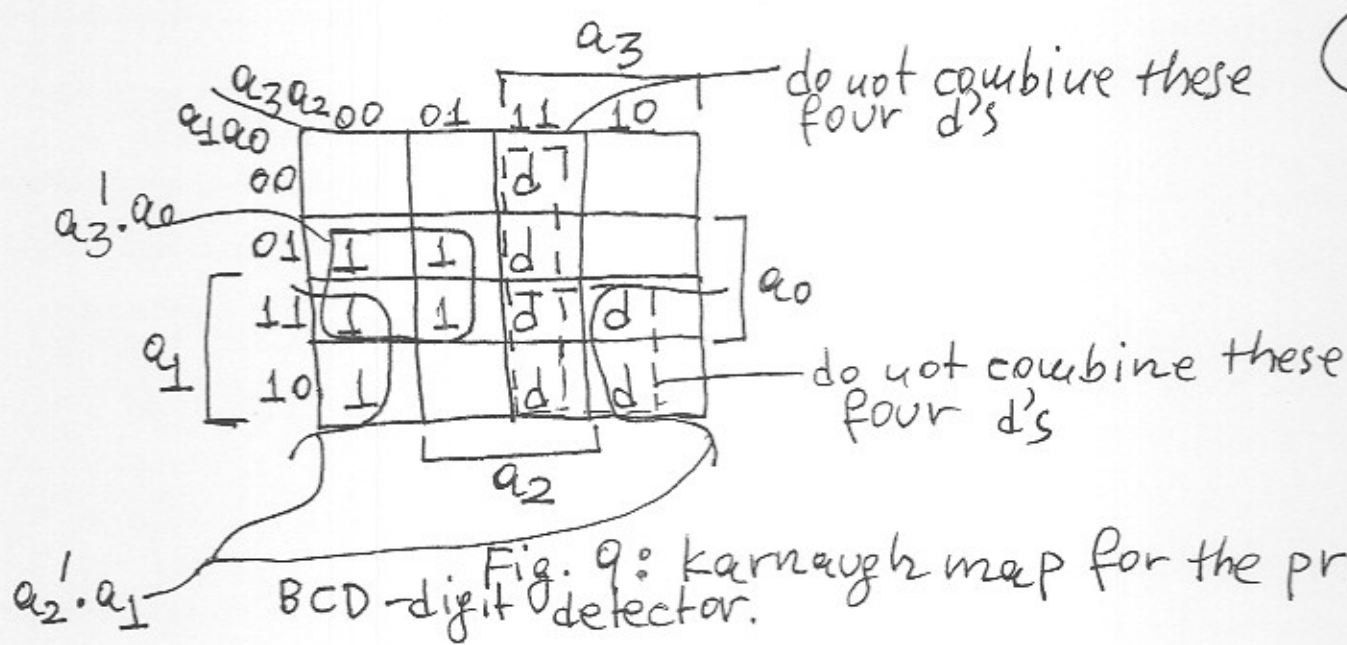 a3
do not combine these
four d's
a3a2 00 01 11 10
a1a0
00 d
a3'.a0
01 1 1 d
a0
11 1 1 d d
a1
10 1 d d
do not combine these
four d's
a2
a2'.a1
Fig. 9: Karnaugh map for the pr
BCD-digit detector.